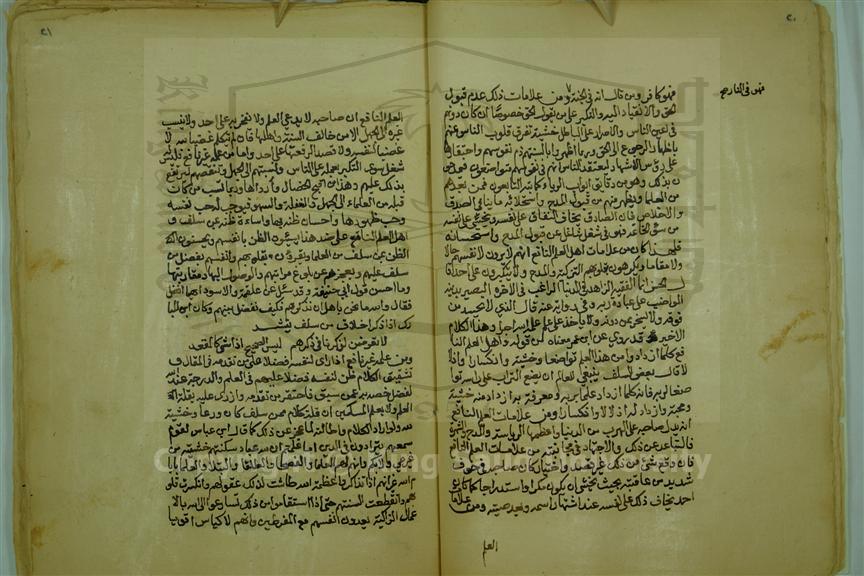 ٢٠
فهو كافر ومن قال انه في الجنة ومن علامات ذلك عدم قبول
فهو في النار صح
الحق والانقياد اليه والتكبر على من يقول الحق خصوصا ان كان دونهم
في اعين الناس والاصرار على الباطل خشية تفرق قلوب الناس عنهم
باظهار الرجوع الى الحق وربما اظهروا بالسنتهم ذم نفوسهم واحتقارها
على رؤس الاشهاد ليعتقد الناس انهم في نفوسهم متواضعون فيمدحو
ن بذلك وهو من دقايق ابواب الريا كما نبه التابعون فمن بعدهم
من العلما ويظهر منهم من قبول المدح واستجلابه ما ينافي الصدق
والاخلاص فان الصادق يخاف النفاق على نفسه ويخشى على نفسه
من سوء الخاتمة فهو في شغل شاغل عن قبول المدح واستحسانه
فلهذا كان من علامات اهل العلم النافع انهم لا يرون لانفسهم حالا
ولا مقاما ويكرهون بقلوبهم التزكية والمدح ولا يتكبرون على احد قا
ل الحسن انما الفقيه الزاهد في الدنيا الراغب في الاخرة البصير بدينه
المواضب على عبادة ربه وفي رواية عنه قال الذي لا يحسد من
فوقه ولا يسخر بمن دونه ولا ياخذ على علم علمه الله اجرا وهذا الكلام
الاخير قد روي عن ابن عمر معناه من قوله واهل العلم النا
فع كلما ازدادوا من هذا العلم تواضعوا وخشية وانكسارا وذلا
قال بعض السلف ينبغي للعالم ان يضع التراب على راسه توا
ضعا لربه فانه كلما ازداد علما بربه ومعرفة به ازداد منه خشية
ومحبة وازداد له ذلا وانكسارا ومن علامات العلم النافع
انه يدل صاحبه على الهرب من الدنيا واعظمها الرياسة والمدح والشهرة
فالتباعد عن ذلك والاجتهاد في مجانبته من علامات العلم النافع
فان وقع شي من ذلك غير قصد واختيار كان صاحبه في خوف
شديد من عاقبته بحيث يخشى ان يكون مكرا واستدراجا كما كان
احمد يخاف ذلك على نفسه عند اشتهار اسمه وبعد صيته ومن علامات
العلم
٢١
العلم النافع ان صاحبه لا يدعي العلم ولا يفخر به على احد ولا ينسب
غيره الى الجهل الا من خالف السنة واهلها فانه يتكلم فيه غضبا لله لا
غضبا لنفسه ولا قصدا لرفعتها على احد واما من علمه غير نافع فليس
شغل سوى التكبر بعلمه على الناس ونسبتهم الى الجهل وتنقصهم ليرتفع
بذلك عليهم وهذا من اقبح الخصال وارداها وربما نسب من كان
قبله من العلماء الى الجهل والغفلة والسهو فيوجب له حب نفسه
وحب ظهورها واحسان ظنه بها واساءة ظنه بمن سلف و
اهل العلم النافع على ضد هذا يسيئون الظن بانفسهم ويحسنون الظن
الظن بمن سلف من العلما ويقرون بقلوبهم وانفسهم بفضل من
سلف عليهم وبعجزهم عن بلوغ مراتبهم والوصول اليها او مقاربتها
وما احسن قول ابي حنيفة وقد سئل عن علقمة والاسود ايهما افضل
فقال والله ما نحن باهل ان نذكرهم فكيف نفضل بينهم وكان ابن المبا
رك اذا ذكر اخلاق من سلف ينشد
لا تعرضن لذكرنا في ذكرهم ليس الصحيح اذا مشى كالمقعد
ومن علمه غير نافع اذا راى لنفسه فضلا على من تقدمه في المقال و
تشقيق الكلام ظن لنفسه فضلا عليهم في العلم والدرجة عند الله
لفضل خص به عمن سبق فاحتقر من تقدمه وازرى عليه بقلة
العلم ولا يعلم المسكين ان قلة كلام من سلف كان ورعا وخشية
لله ولو اراد الكلام واطالته لما عجز عن ذلك كما قال ابن عباس لقوم
سمعهم يتمارون في الدين اما علمتم ان لله عباد اسكتتهم خشيته من
غير عي ولا بكم وانهم لهم العلما والفصحا والطلقا والنبلا والعلما بايا
م الله غير انهم اذا تذكروا عظمة الله طاشت لذلك عقولهم وانكسرت قلو
بهم وانقطعت السنتهم حتى اذا استفاقوا من ذلك تسارعوا الى الله بالا
عمال الزاكية يعدون انفسهم مع المفرطين وانهم لاكياس اقويا